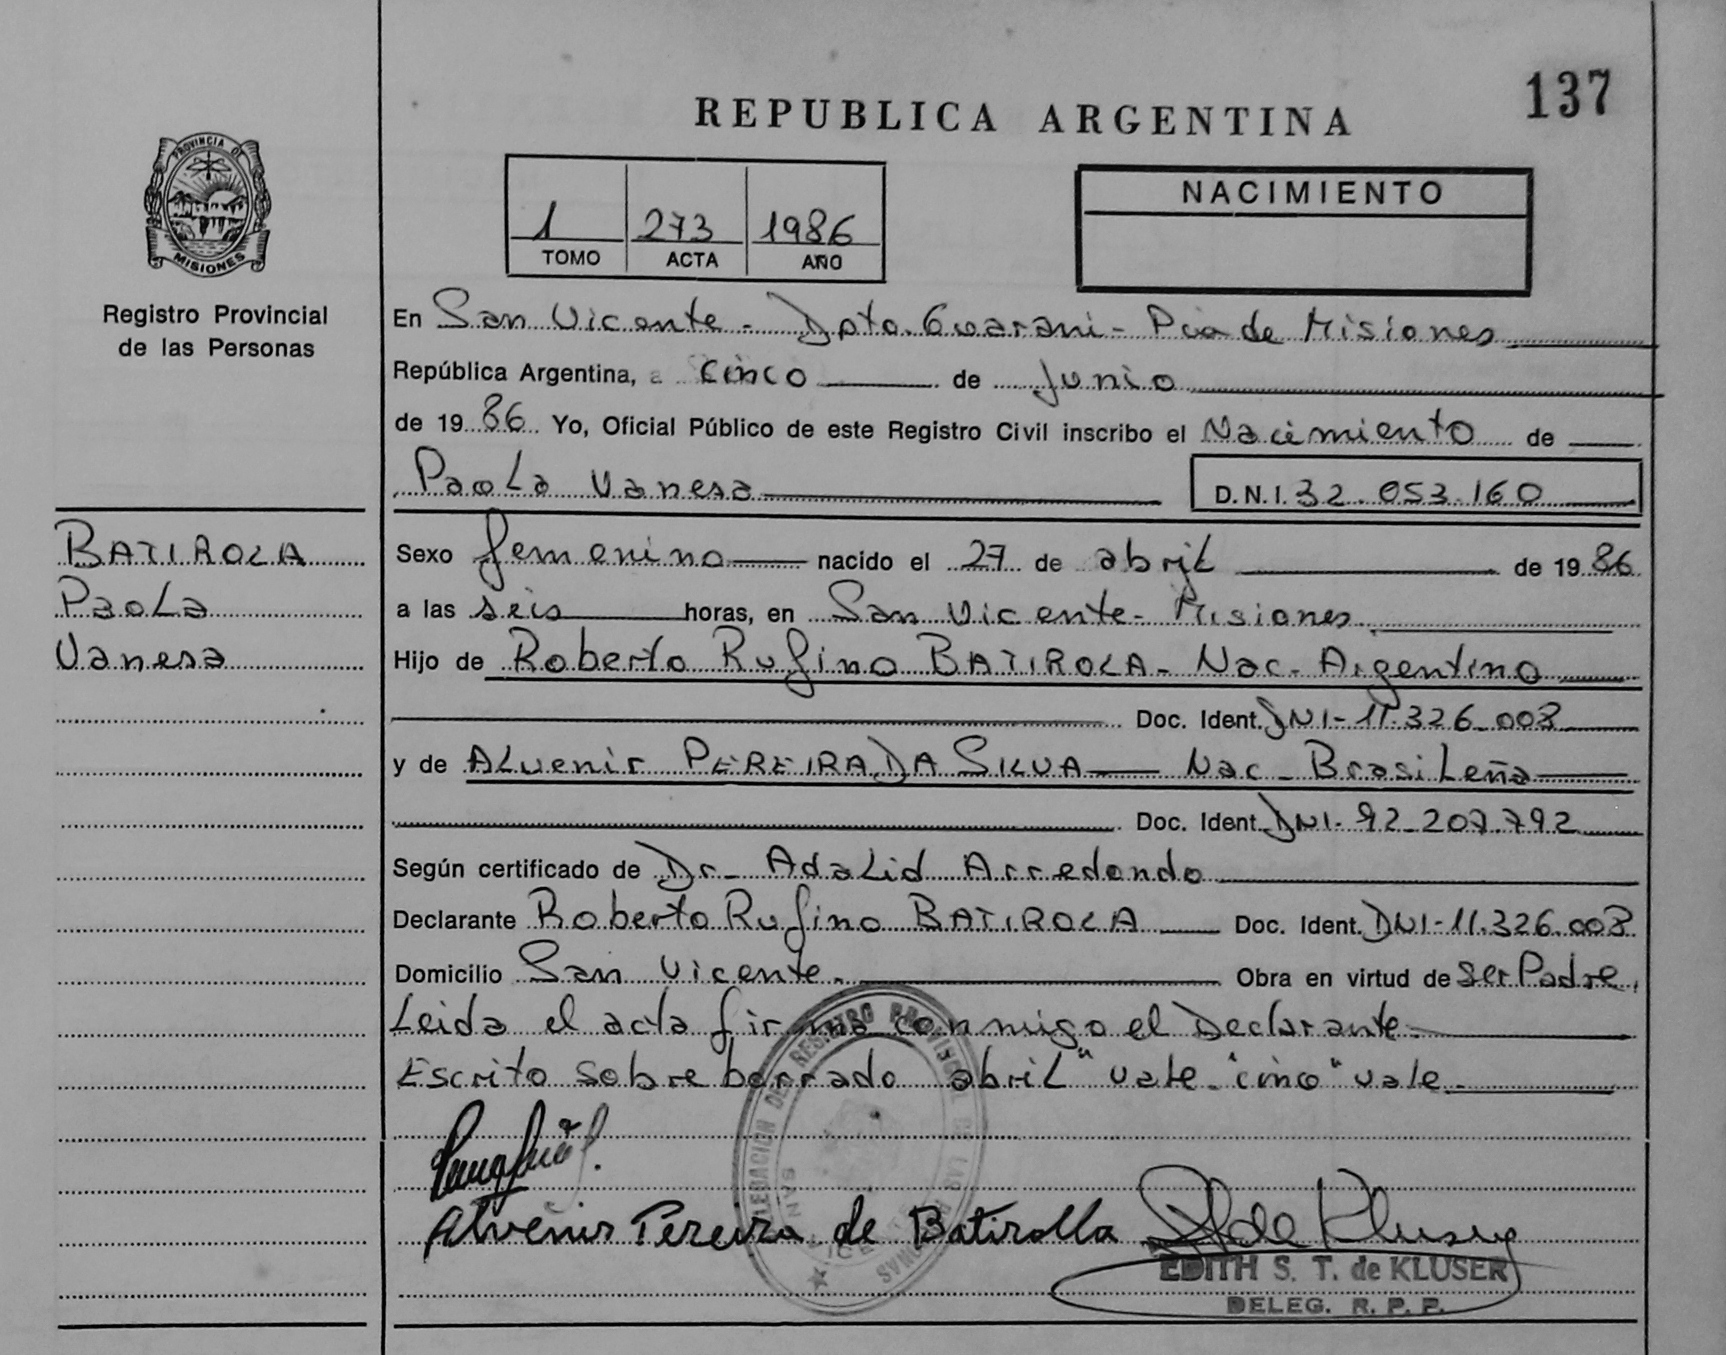 137
REPUBLICA ARGENTINA
PROVINCIA DE
MISIONES
Registro Provincial
de las Personas
1 273 1986
TOMO ACTA AÑO
NACIMIENTO
En San Vicente - Dpto. Guarani - Pcia de Misiones
República Argentina, a cinco de Junio
de 1986 Yo, Oficial Público de este Registro Civil inscribo el Nacimiento de
Paola Vanesa D.N.I. 32.053.160
BATIROLA
Paola
Vanesa
Sexo femenino nacido el 27 de abril de 1986
a las seis horas, en San Vicente - Misiones
Hijo de Roberto Rufino BATIROLA - Nac - Argentino
Doc. Ident. DNI - 11.326.008
y de Alvenir PEREIRA DA SILVA Nac - Brasileña
Doc. Ident. DNI - 92.207.792
Según certificado de Dr - Adalid Arredondo
Declarante Roberto Rufino BATIROLA Doc. Ident. DNI - 11.326.008
Domicilio San Vicente. Obra en virtud de ser Padre,
Leida el acta firma conmigo el Declarante -
Escrito sobre borrado abril" vale - "cinco" vale -
Alvenir Pereira de Batirolla
EDITH S. T. de KLUSER
DELEG. R. P. P.